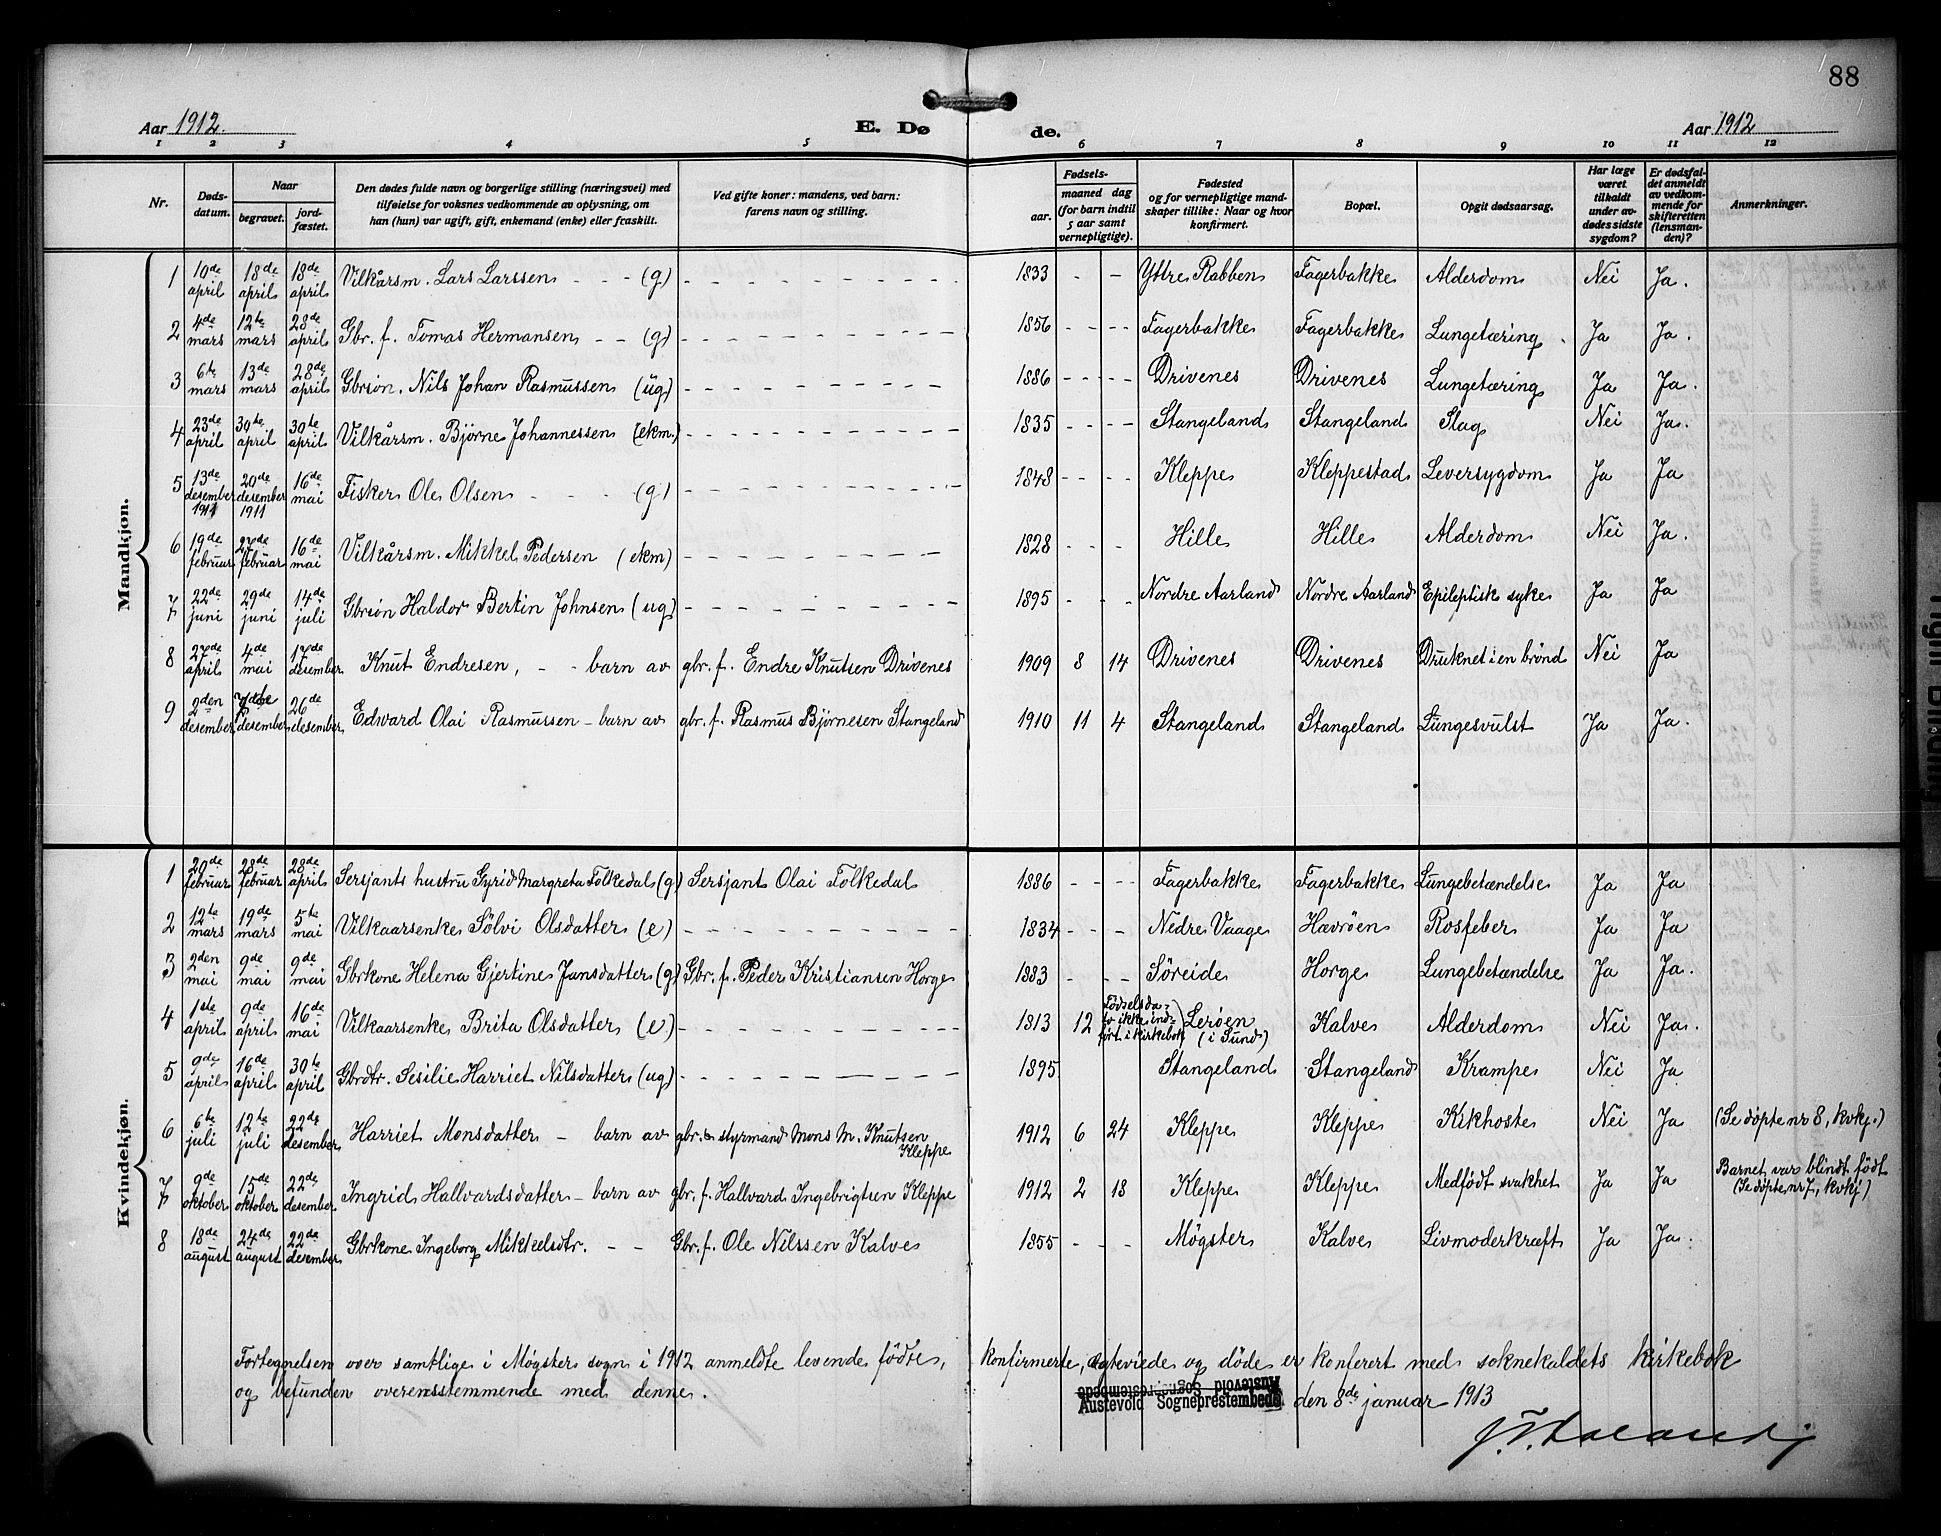 88
Aar 1912. E. Døde. Aar 1912
1 2 3 4 5 6 7 8 9 10 11 12
Nr. Døds-datum. Naar begravet. jord-fæstet. Den dødes fulde navn og borgerlige stilling (næringsvei) med tilføielse for voksnes vedkommende av oplysning, om han (hun) var ugift, gift, enkemand (enke) eller fraskilt. Ved gifte koner: mandens, ved barn: farens navn og stilling. Fødsels- aar. maaned dag (for barn indtil 5 aar samt vernepligtige). Fødested og for vernepligtige mandskaper tillike: Naar og hvor konfirmert. Bopæl. Opgit dødsaarsag. Har læge været tilkaldt under avdødes sidste sygdom? Er dødsfaldet anmeldt av vedkommende for skifteretten (lensmanden)? Anmerkninger.
Mandkjøn.
1 10de april 18de april 18de april Vilkårsm. Lars Larssen - - (g) 1833 - - Yttre Rabben Fagerbakke Alderdom Nei Ja.
2 4de mars 12te mars 28de april Gbr. f. Tomas Hermansen - - (g) 1856 - - Fagerbakke Fagerbakke Lungetæring Ja Ja.
3 6te mars 13de mars 28de april Gbrsøn. Nils Johan Rasmussen (ug) 1886 - - Drivenes Drivenes Lungetæring Ja Ja.
4 23de april 30te april 30te april Vilkårsm. Bjørne Johannessen (ekm.) 1835 - - Stangeland Stangeland Slag Nei Ja.
5 13de desember 1911 20de desember 1911 16de mai Fisker Ole Olsen - - (g) 1848 - - Kleppe Kleppestad Leversygdom Ja Ja
6 19de februar 27de februar 16de mai Vilkårsm. Mikkel Pedersen (ekm) 1828 - - Hille Hille Alderdom Nei Ja.
7 22de juni 29de juni 14de juli Gbrsøn Haldor Bertin Johnsen (ug) 1895 - - Nordre Aarland Nordre Aarland Epileptisk syke Ja Ja
8 27de april 4de mai 17de desember Knut Endresen, - - barn av gbr. f. Endre Knutsen Drivenes 1909 8 14 Drivenes Drivenes Druknet i en brønd Nei Ja
9 2den desember desember 26de desember Edward Olai Rasmussen - barn av gbr. f. Rasmus Bjørnesen Stangeland 1910 11 4 Stangeland Stangeland Lungesvulst Ja Ja.
Kvindekjøn.
1 20de februar 28de februar 28de april Sersjants hustru Gyrid Margreta Folkedal (g) Sersjant Olai Folkedal 1886 - - Fagerbakke Fagerbakke Lungebetændelse Ja Ja
2 12te mars 19de mars 5te mai Vilkaarsenke Sølvi Olsdatter (e) 1834 - - Nedre Vaage Havrøen Rosfeber Ja Ja
3 2den mai 9de mai 9de mai Gbrkone Helena Gjertine Jansdatter (g) Gbr. f. Peder Kristiansen Horge 1883 - - Søreide Horge Lungebetændelse Ja Ja.
4 1ste april 9de april 16de mai Vilkaarsenke Brita Olsdatter (e) 1813 12 Fødselsda-to ikke ind-ført i kirkebok) Lerøen (i Sund) Kalve Alderdom Nei Ja.
5 9de april 16de april 30te april Gbrdtr. Sesilie Harriet Nilsdatter (ug) 1895 Stangeland Stangeland Krampe Nei Ja
6 6te juli 12te juli 22de desember Harriet Monsdatter - barn av gbr. & styrmand Mons M. Knutsen Kleppe 1912 6 24 Kleppe Kleppe Kikhoste Nei Ja (Se døpte nr 8, kvkj.)
7 9de oktober 15de oktober 22de desember Ingrid Hallvardsdatter - barn av gbr. f. Hallvard Ingebrigtsen Kleppe 1912 2 18 Kleppe Kleppe Medfødt svakhet Ja Ja Barnet var blindt født (Se døpte nr 7, kvkj)
8 18de august 24de august 22de desember Gbrkone Ingeborg Mikkelsdtr. - - Gbr. f. Ole Nilssen Kalve 1855 - - Møgster Kalve Livmoderkræft Ja Ja.
Fortegnelsen over samtlige i Møgster sogn i 1912 anmeldte levende fødte, konfirmerte, egteviede og døde er konferert med soknekaldets kirkebok
og befunden overensstemmende med denne. Austevold Sogneprestembede den 8de januar 1913
Austevold Sogneprestembede